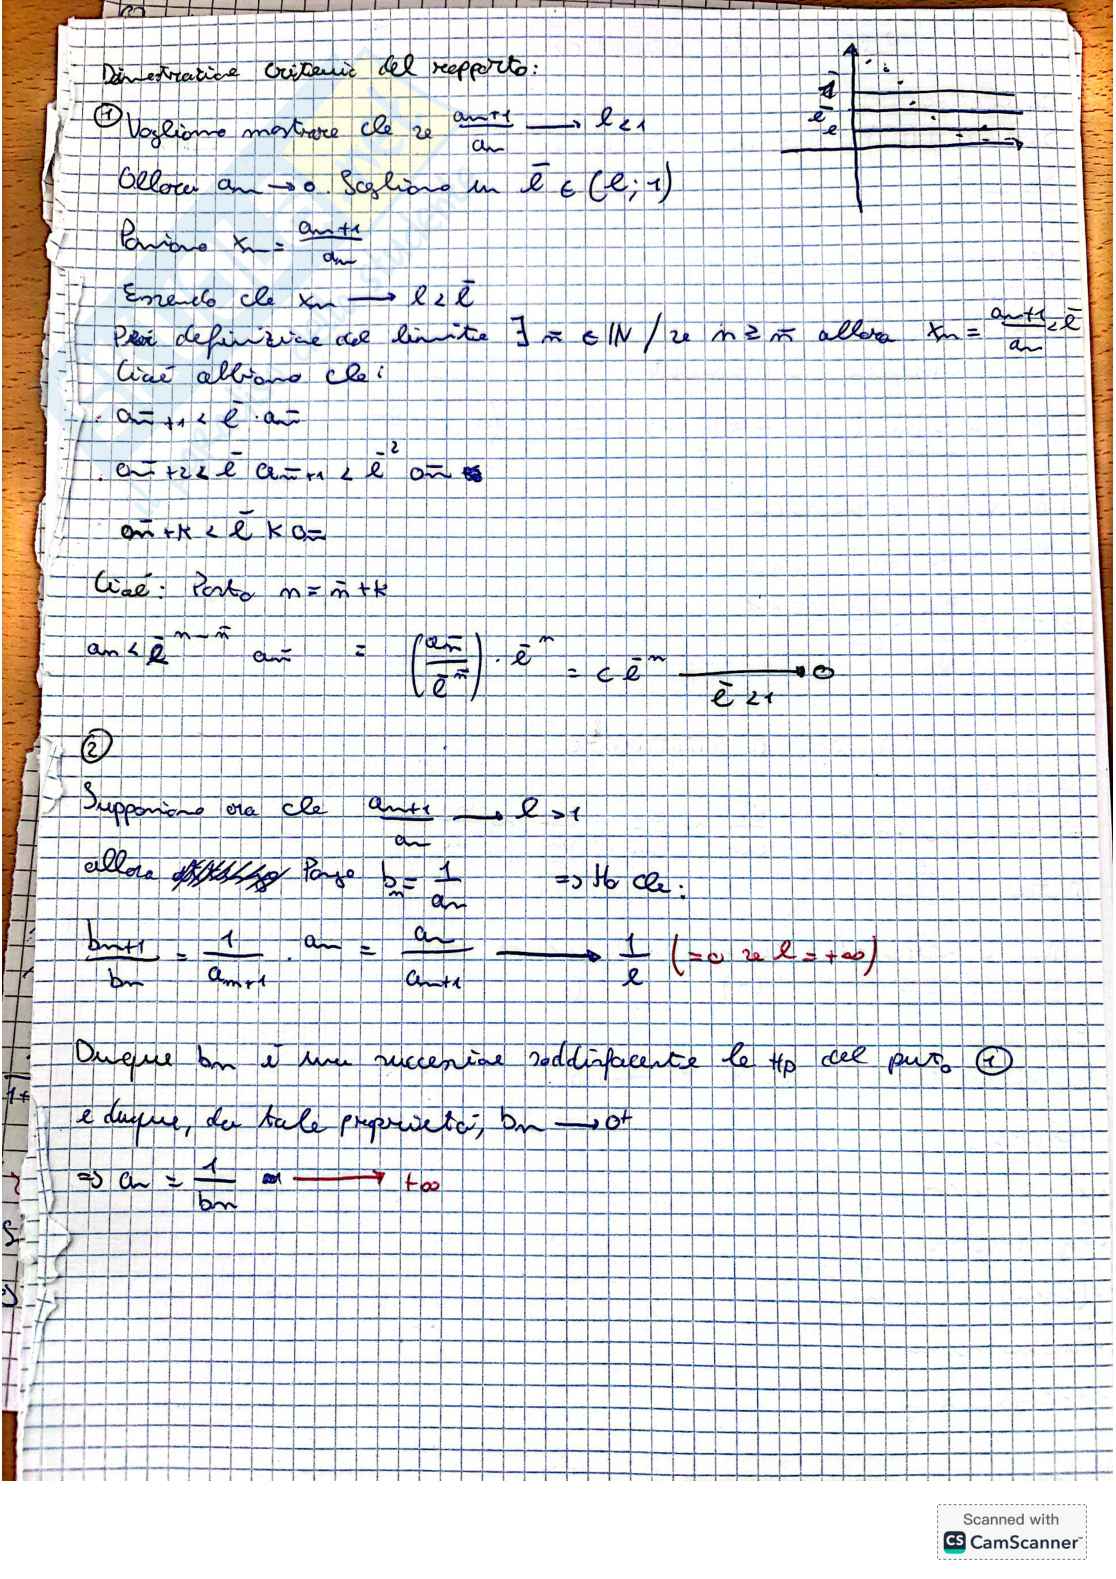 Dimostrazione criterio del rapporto:
① Vogliamo mostrare che se an+1/an → l<1
Allora an → 0. Scegliamo un l̄ ∈ (l;1)
Poniamo xn = an+1/an
1
l̄
l
Essendo che xn → l < l̄
Per definizione del limite ∃ n̄ ∈ IN / se n ≥ n̄ allora xn = an+1/an < l̄
Cioè abbiamo che:
. an̄+1 < l̄ · an̄
. an̄+2 < l̄ an̄+1 < l̄² an̄
an̄+k < l̄ k an̄
Cioè: Posto n = n̄+k
an < l̄^(n-n̄) an̄ = (an̄/l̄^n̄) · l̄^n = c l̄^n → 0
l̄ < 1
②
Supponiamo ora che an+1/an → l > 1
allora Pongo bn = 1/an => Ho che:
bn+1/bn = 1/an+1 · an = an/an+1 → 1/l (=0 se l = +∞)
Dunque bn è una successione soddisfacente le Hp del punto ①
e dunque, da tale proprietà, bn → 0+
=> an = 1/bn → +∞
Scanned with
CS CamScanner